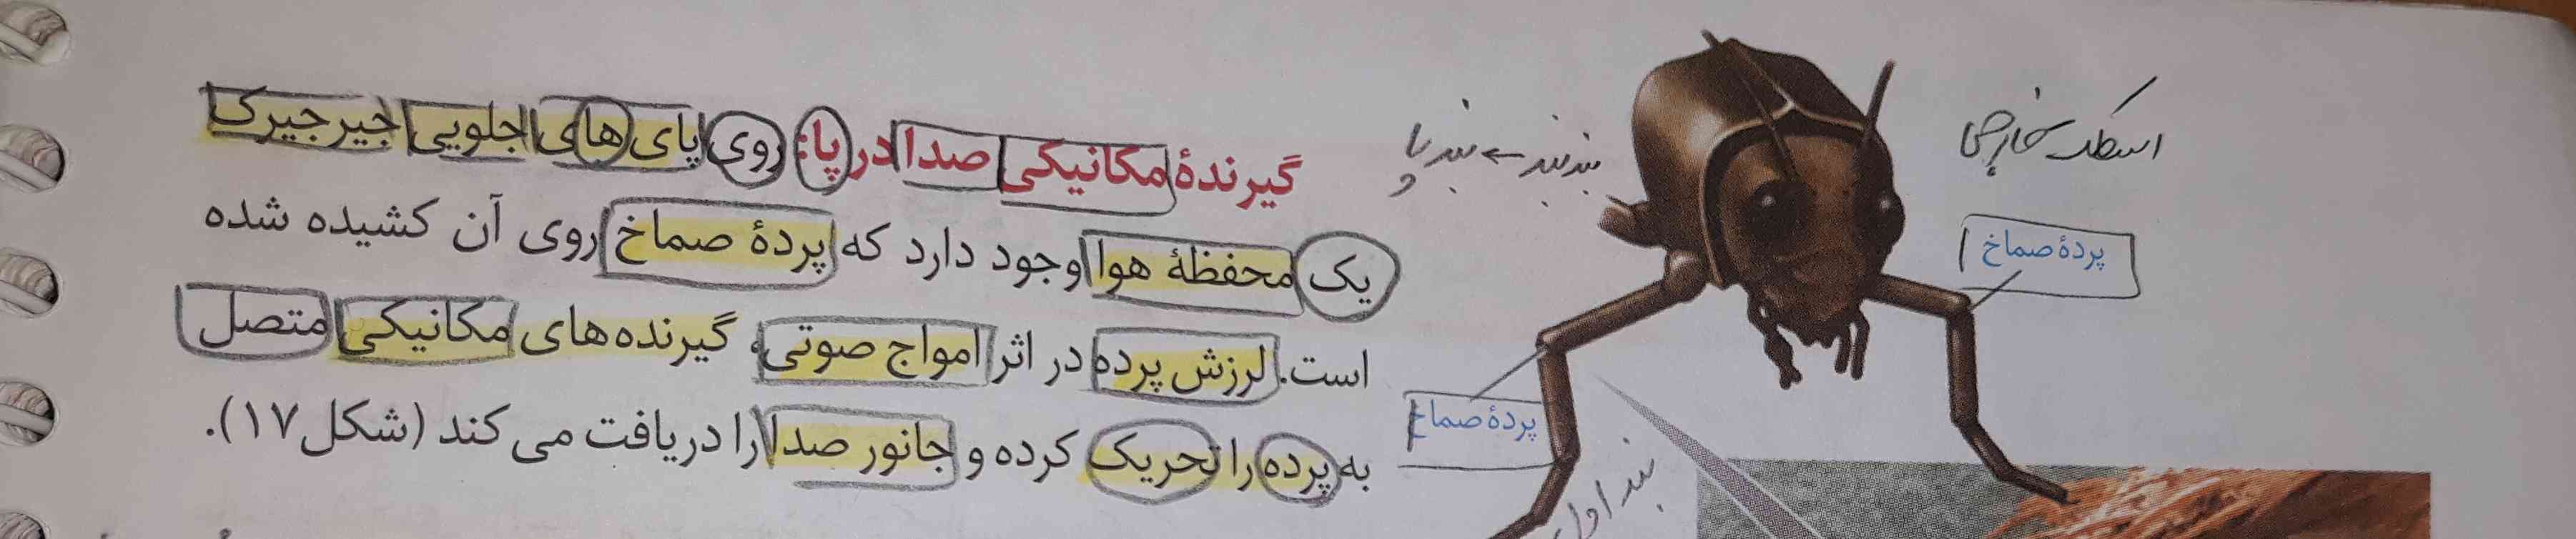 گیرندهٔ مکانیکی صدا در پا: روی پای های جلویی جیرجیرک
یک محفظهٔ هوا وجود دارد که پردهٔ صماخ روی آن کشیده شده
است. لرزش پرده در اثر امواج صوتی، گیرنده‌های مکانیکی متصل
به پرده را تحریک کرده و جانور صدا را دریافت می‌کند (شکل ۱۷).
اسکلت خارجی
بندبند ← بند پا
پردهٔ صماخ
پردهٔ صماخ
بند اول